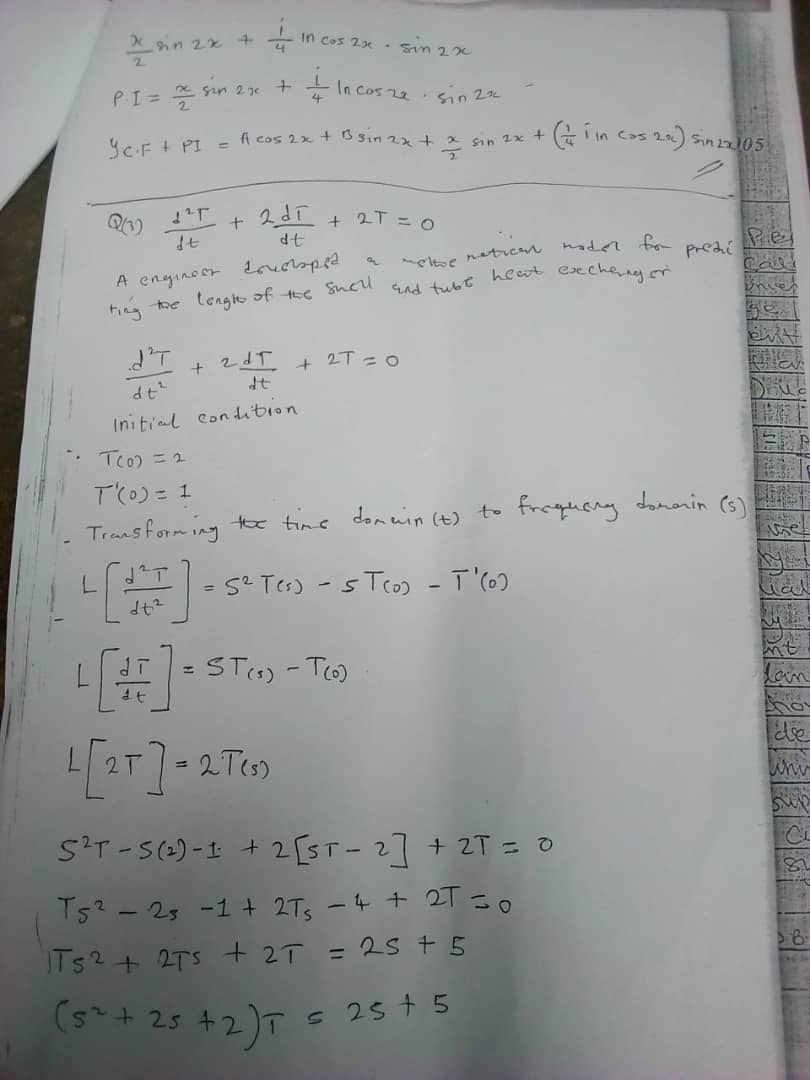 x/2 sin 2x + 1/4 ln cos 2x . sin 2x
P.I = x/2 sin 2x + 1/4 ln cos 2x . sin 2x
y C.F + PI = A cos 2x + B sin 2x + x/2 sin 2x + (1/4 ln cos 2x) sin 2x
Q(3) d²T/dt + 2dT/dt + 2T = 0
A engineer developed a model for predic
ting the length of the shell and tube heat exchanger
d²T/dt² + 2dT/dt + 2T = 0
Initial condition
∴ T(0) = 2
T'(0) = 1
- Transforming the time domain (t) to frequency domain (s)
L[d²T/dt²] = S² T(s) - S T(0) - T'(0)
L[dT/dt] = ST(s) - T(0)
L[2T] = 2T(s)
S²T - S(2) - 1 + 2[ST - 2] + 2T = 0
TS² - 2s - 1 + 2Ts - 4 + 2T = 0
TS² + 2TS + 2T = 2S + 5
(S² + 2S + 2)T = 2S + 5